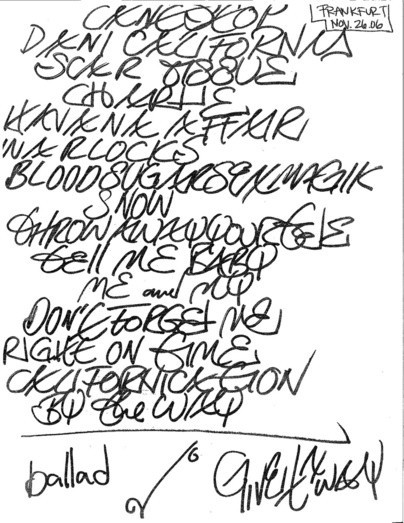 FRANKFURT
NOV. 26.06
CANTSTOP
DANI CALIFORNIA
SCAR TISSUE
CHARLIE
HAVANA AFFAIR
WARLOCKS
BLOODSUGARSEXMAGIK
SNOW
THROWAWAYYOURTELE
TELL ME BABY
ME and MY
DON'T FORGET ME
RIGHT ON TIME
CALIFORNICATION
BY the WAY
ballad
GIVEITAWAY